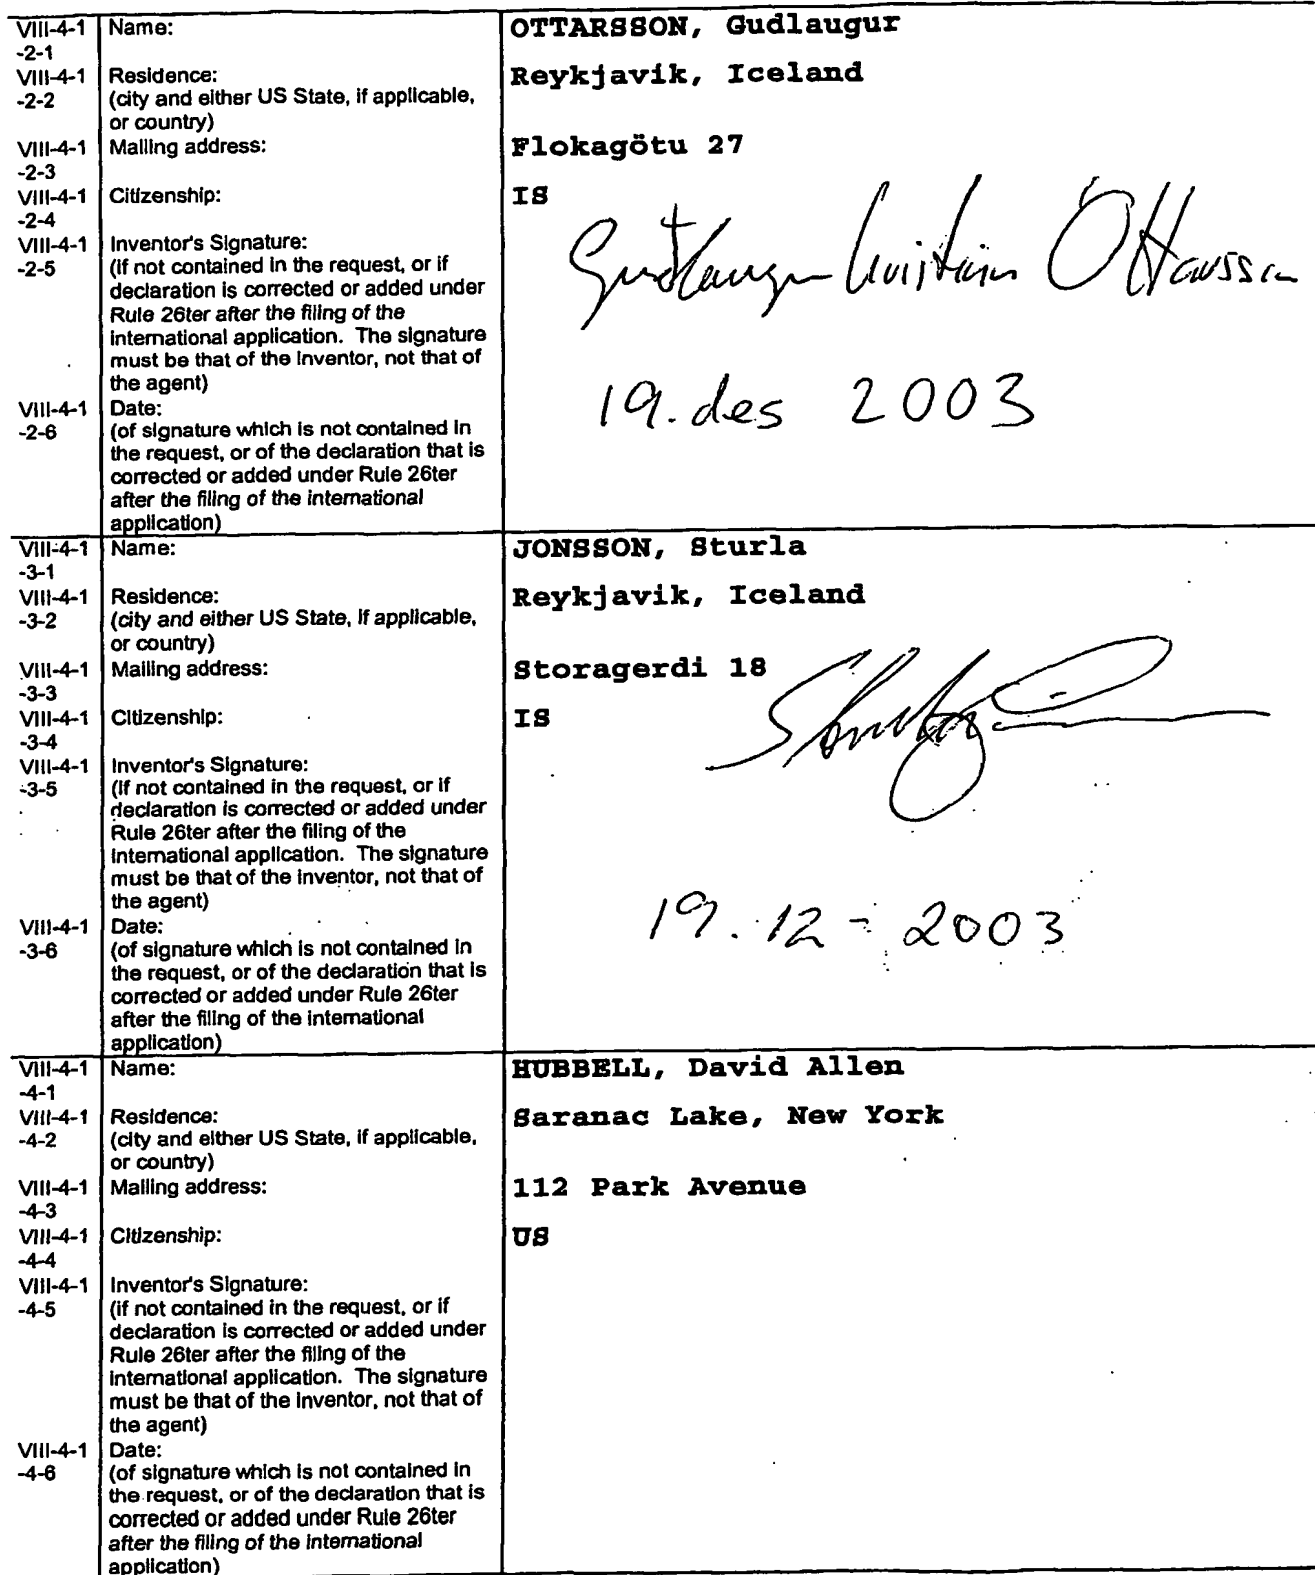 VIII-4-1 Name: OTTARSSON, Gudlaugur
-2-1
VIII-4-1 Residence: Reykjavik, Iceland
-2-2 (city and either US State, if applicable,
or country)
VIII-4-1 Mailing address: Flokagötu 27
-2-3
VIII-4-1 Citizenship: IS
-2-4
VIII-4-1 Inventor's Signature:
-2-5 (if not contained in the request, or if
declaration is corrected or added under
Rule 26ter after the filing of the
international application. The signature
must be that of the inventor, not that of
the agent)
VIII-4-1 Date: 19. des 2003
-2-6 (of signature which is not contained in
the request, or of the declaration that is
corrected or added under Rule 26ter
after the filing of the international
application)
VIII-4-1 Name: JONSSON, Sturla
-3-1
VIII-4-1 Residence: Reykjavik, Iceland
-3-2 (city and either US State, if applicable,
or country)
VIII-4-1 Mailing address: Storagerdi 18
-3-3
VIII-4-1 Citizenship: IS
-3-4
VIII-4-1 Inventor's Signature:
-3-5 (if not contained in the request, or if
declaration is corrected or added under
Rule 26ter after the filing of the
international application. The signature
must be that of the inventor, not that of
the agent)
VIII-4-1 Date: 19. 12 - 2003
-3-6 (of signature which is not contained in
the request, or of the declaration that is
corrected or added under Rule 26ter
after the filing of the international
application)
VIII-4-1 Name: HUBBELL, David Allen
-4-1
VIII-4-1 Residence: Saranac Lake, New York
-4-2 (city and either US State, if applicable,
or country)
VIII-4-1 Mailing address: 112 Park Avenue
-4-3
VIII-4-1 Citizenship: US
-4-4
VIII-4-1 Inventor's Signature:
-4-5 (if not contained in the request, or if
declaration is corrected or added under
Rule 26ter after the filing of the
international application. The signature
must be that of the inventor, not that of
the agent)
VIII-4-1 Date:
-4-6 (of signature which is not contained in
the request, or of the declaration that is
corrected or added under Rule 26ter
after the filing of the international
application)